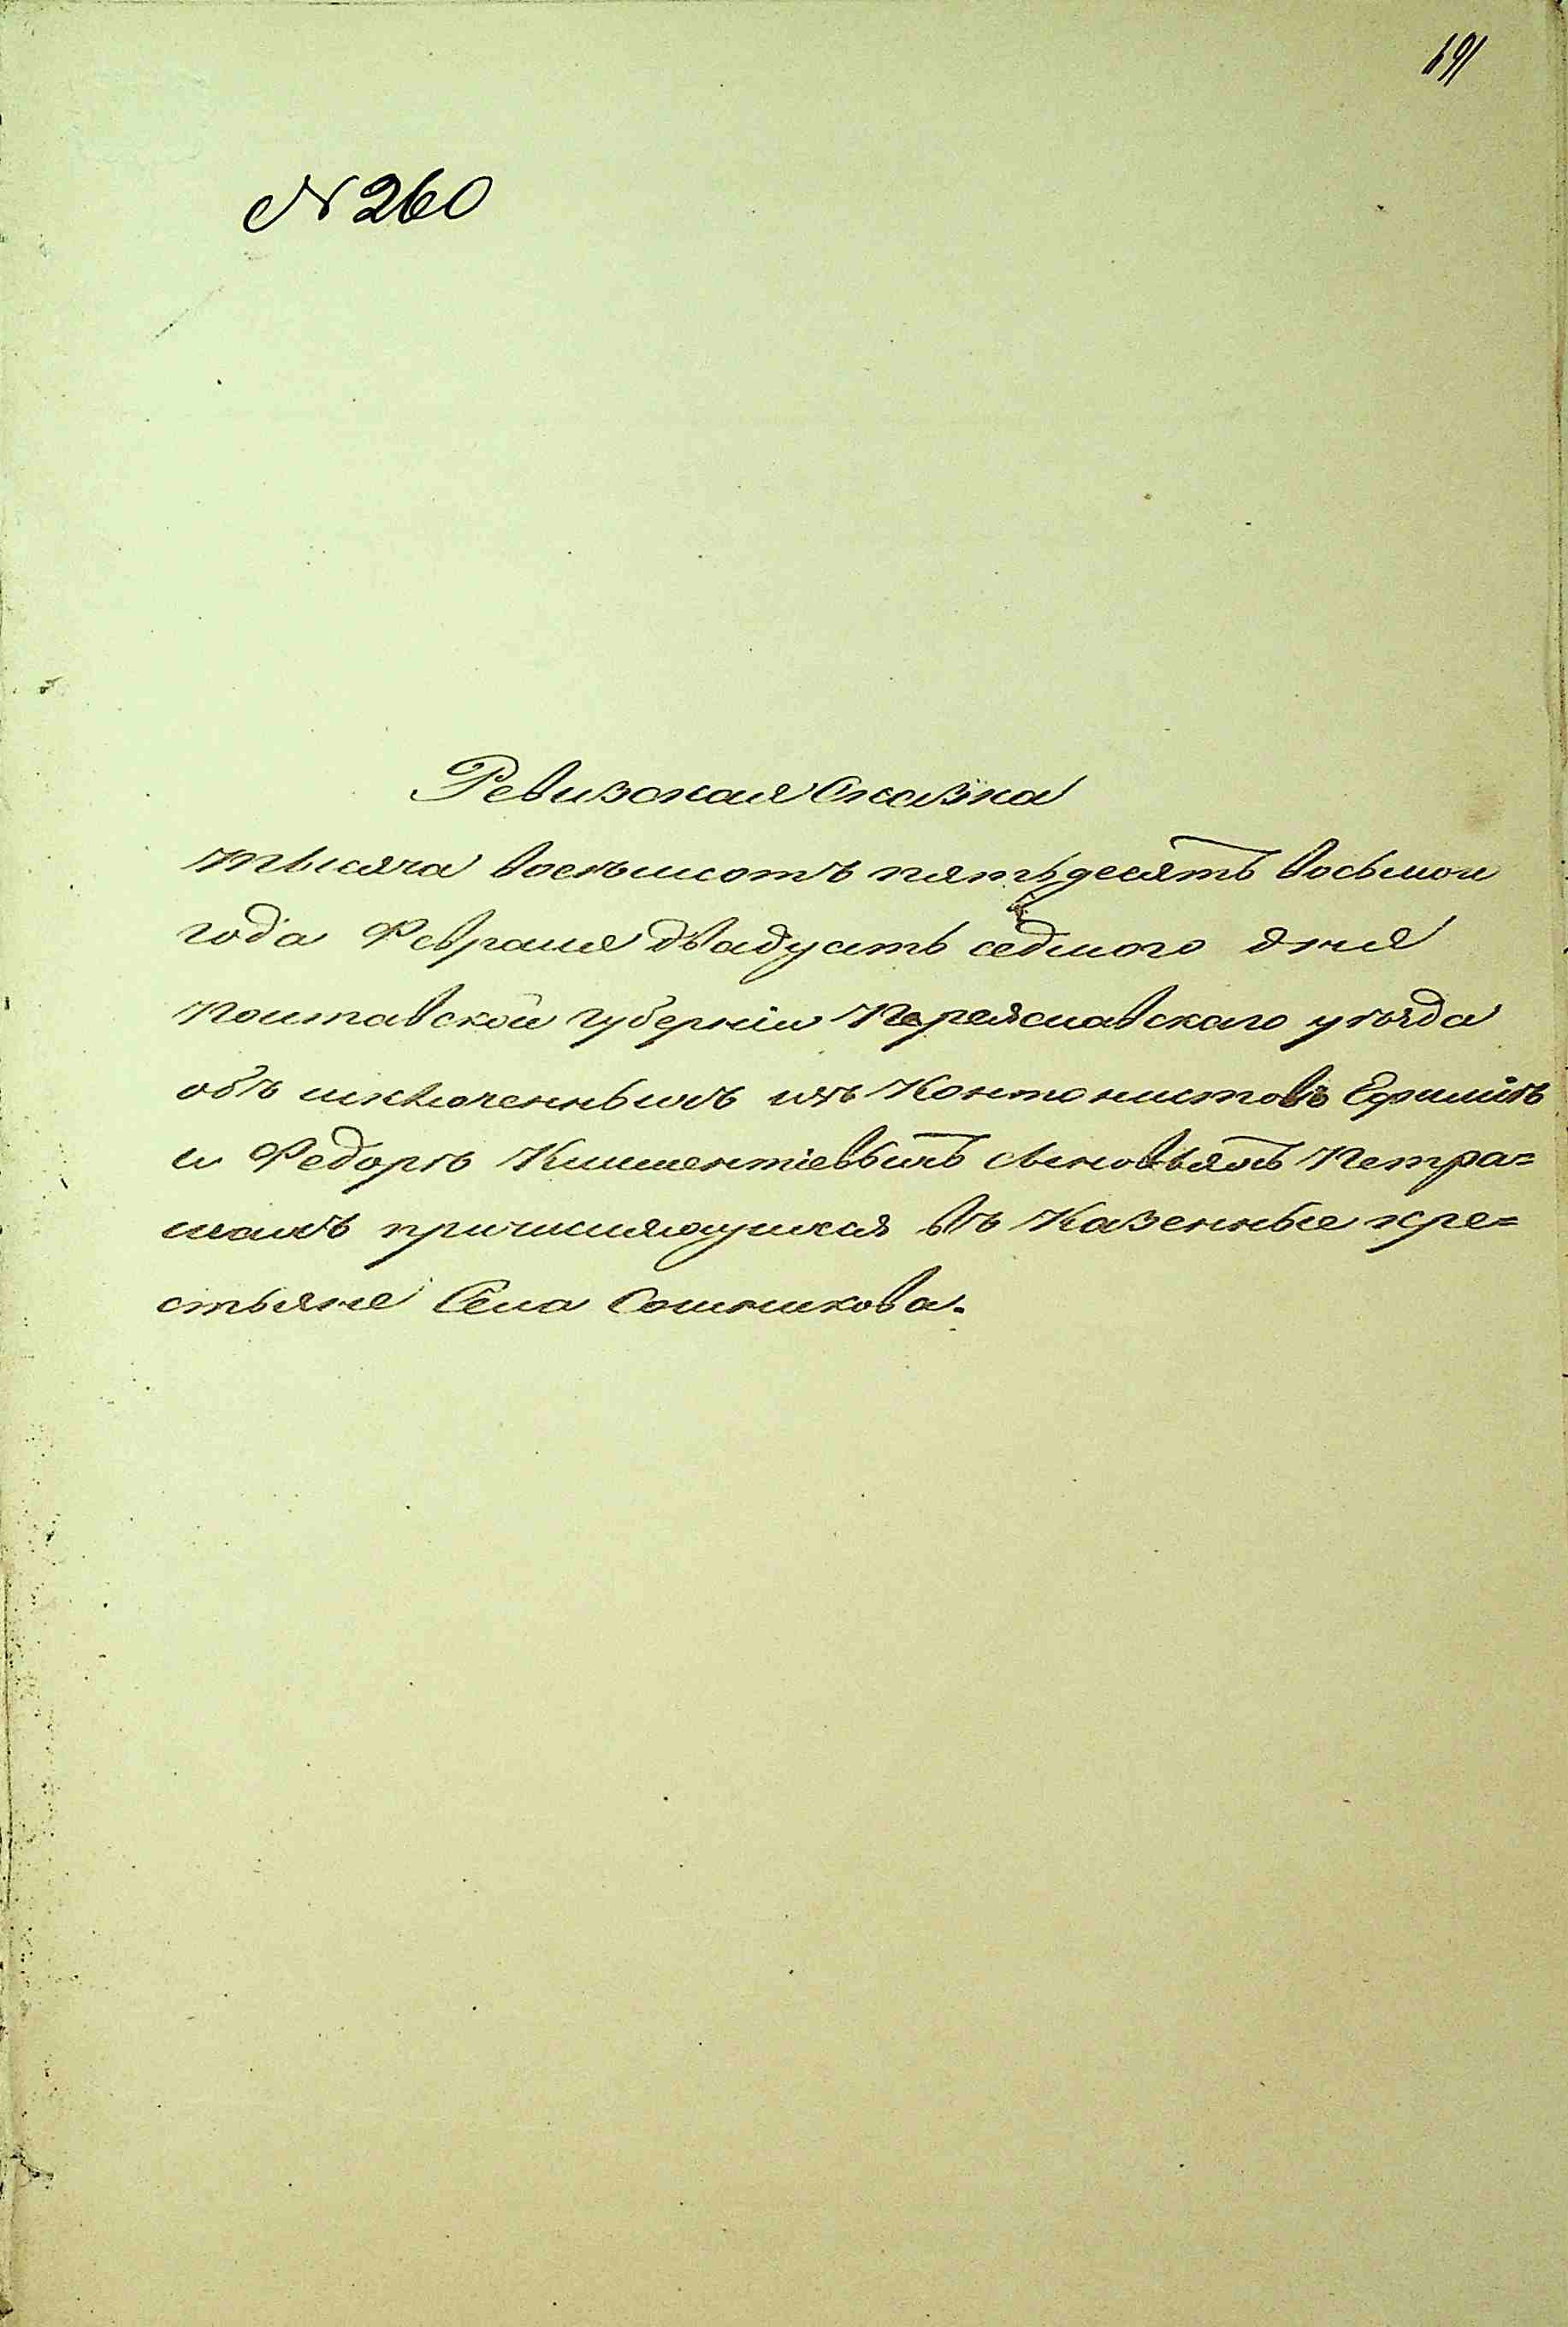 691
N 260
Ревизская Сказка
тысяча восемьсотъ пятьдесятъ восьмого
года Февраля двадцать седмого дня
Полтавской губерніи Переяславскаго уѣзда
объ исключенныхъ изъ Контонистовъ Ефимѣ
и Федорѣ Климентіевыхъ сыновьяхъ Петра=
шахъ причисляющихся въ Казенные кре=
стьяне Села Сошникова.